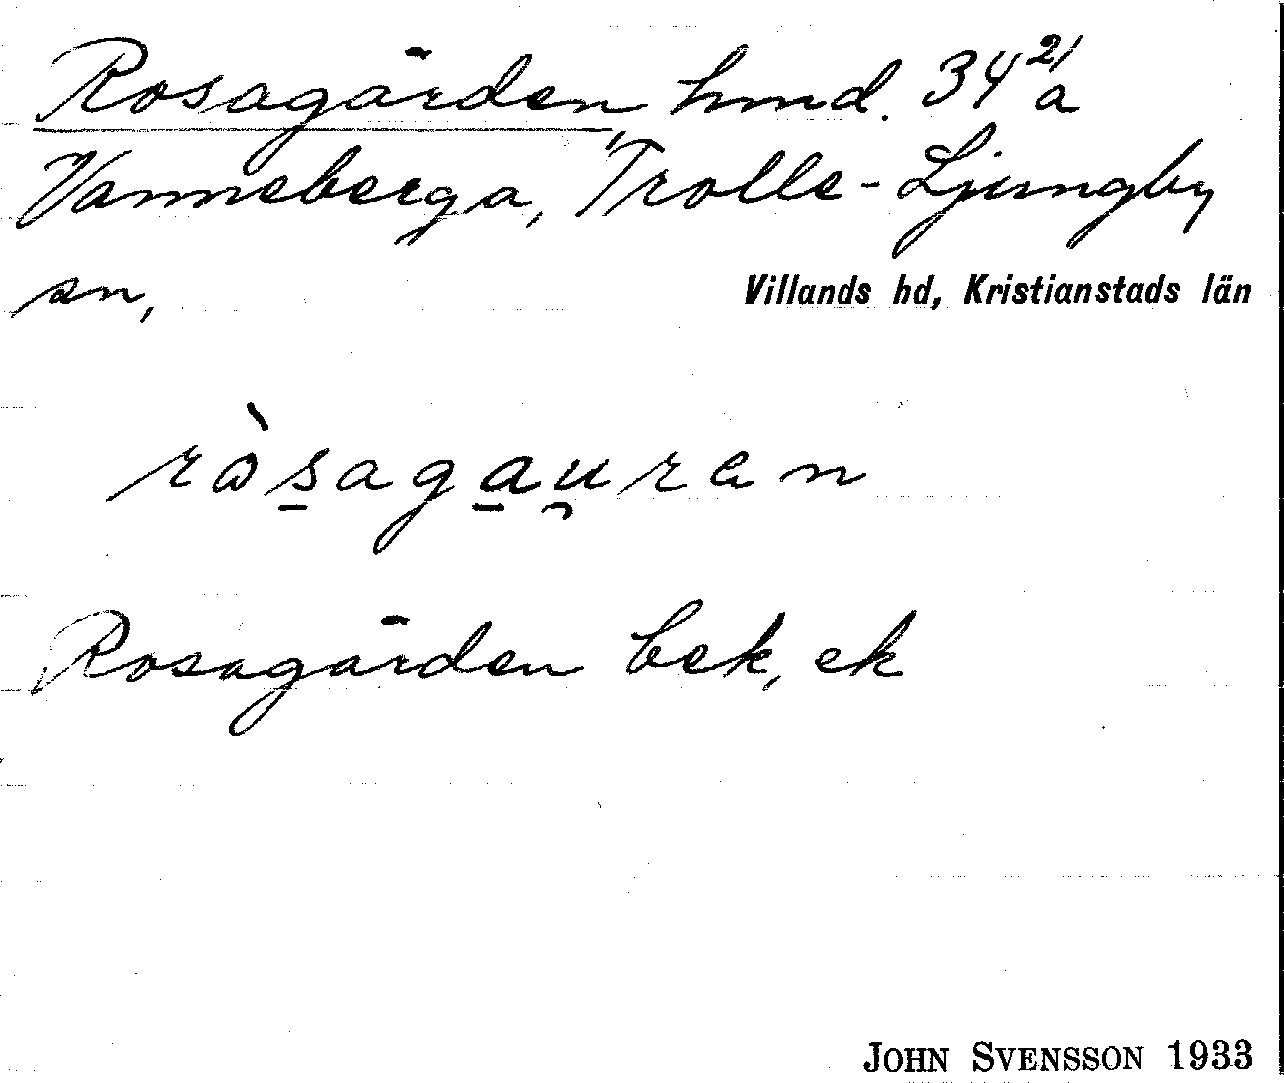 Rosagården, hmd. 34²¹a
Vanneberga, Trolle-Ljungby
sn,
Villands hd, Kristianstads län
ròs̱aga̱u̯ren
Rosagården bek, ek
JOHN SVENSSON 1933